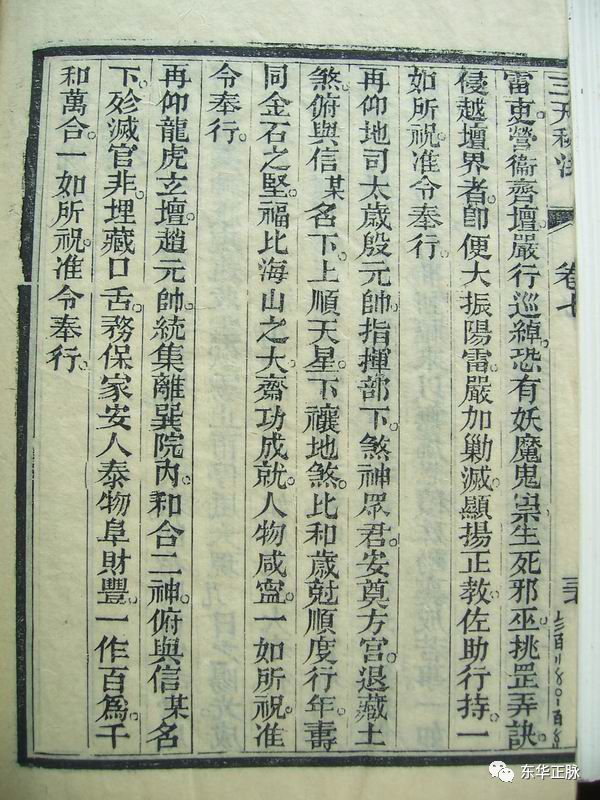 卷七
雷吏營衞齋壇。嚴行巡綽。恐有妖魔鬼祟。生死邪巫。挑罡弄訣。
侵越壇界者。卽便大振陽雷。嚴加勦滅。顯揚正教。佐助行持。一
如所祝。准令奉行。
再仰地司太歲殷元帥。指揮部下。煞神眾君。安奠方宮。退藏土
煞。俯與信某名下。上順天星。下禳地煞。比和歲尅。順度行年。壽
同金石之堅。福比海山之大。齋功成就。人物咸寧。一如所祝。准
令奉行。
再仰龍虎玄壇。趙元帥。統集離巽院內。和合二神。俯與信某名
下。殄滅官非。埋藏口舌。務保家安人泰。物阜財豐。一作百爲。千
和萬合。一如所祝。准令奉行。
东华正脉